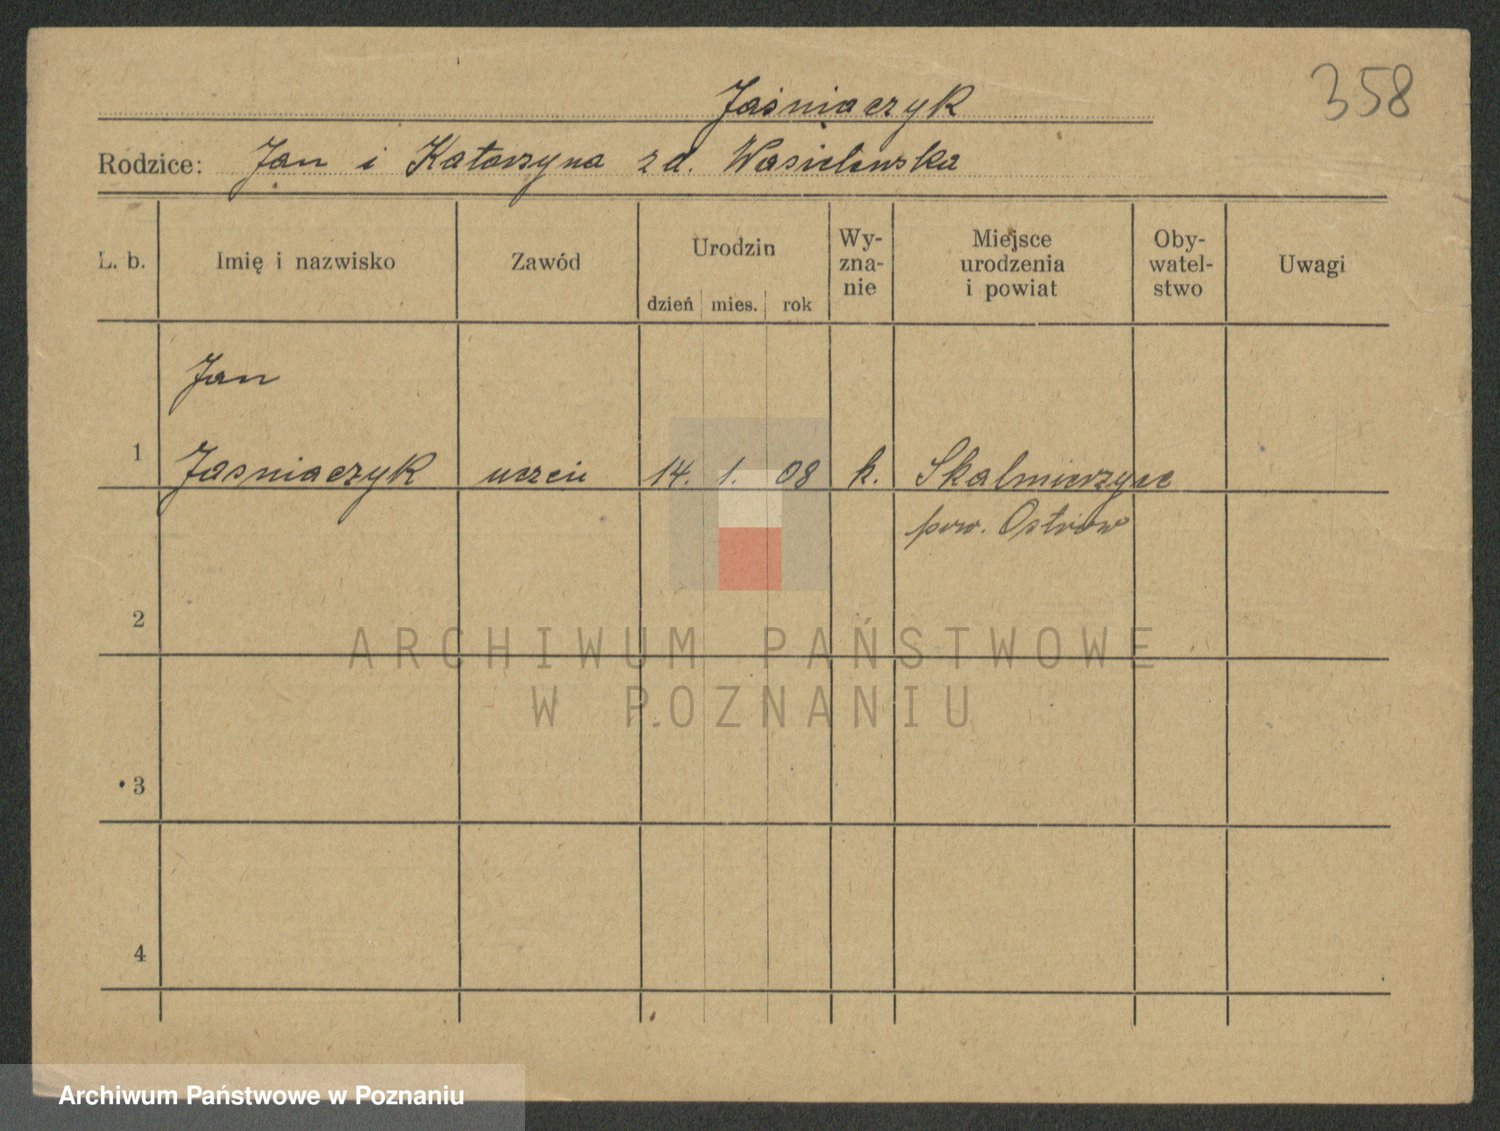 358
Jaśniaczyk
Rodzice: Jan i Katarzyna z d. Wasielewska
L. b. Imię i nazwisko Zawód Urodzin dzień mies. rok Wy-zna-nie Miejsce urodzenia i powiat Oby-watel-stwo Uwagi
Jan
1 Jasniaczyk uczeń 14. 1. 08 k. Skalmierzyce
pow. Ostrów
2
ARCHIWUM PAŃSTWOWE
W POZNANIU
3
4
Archiwum Państwowe w Poznaniu